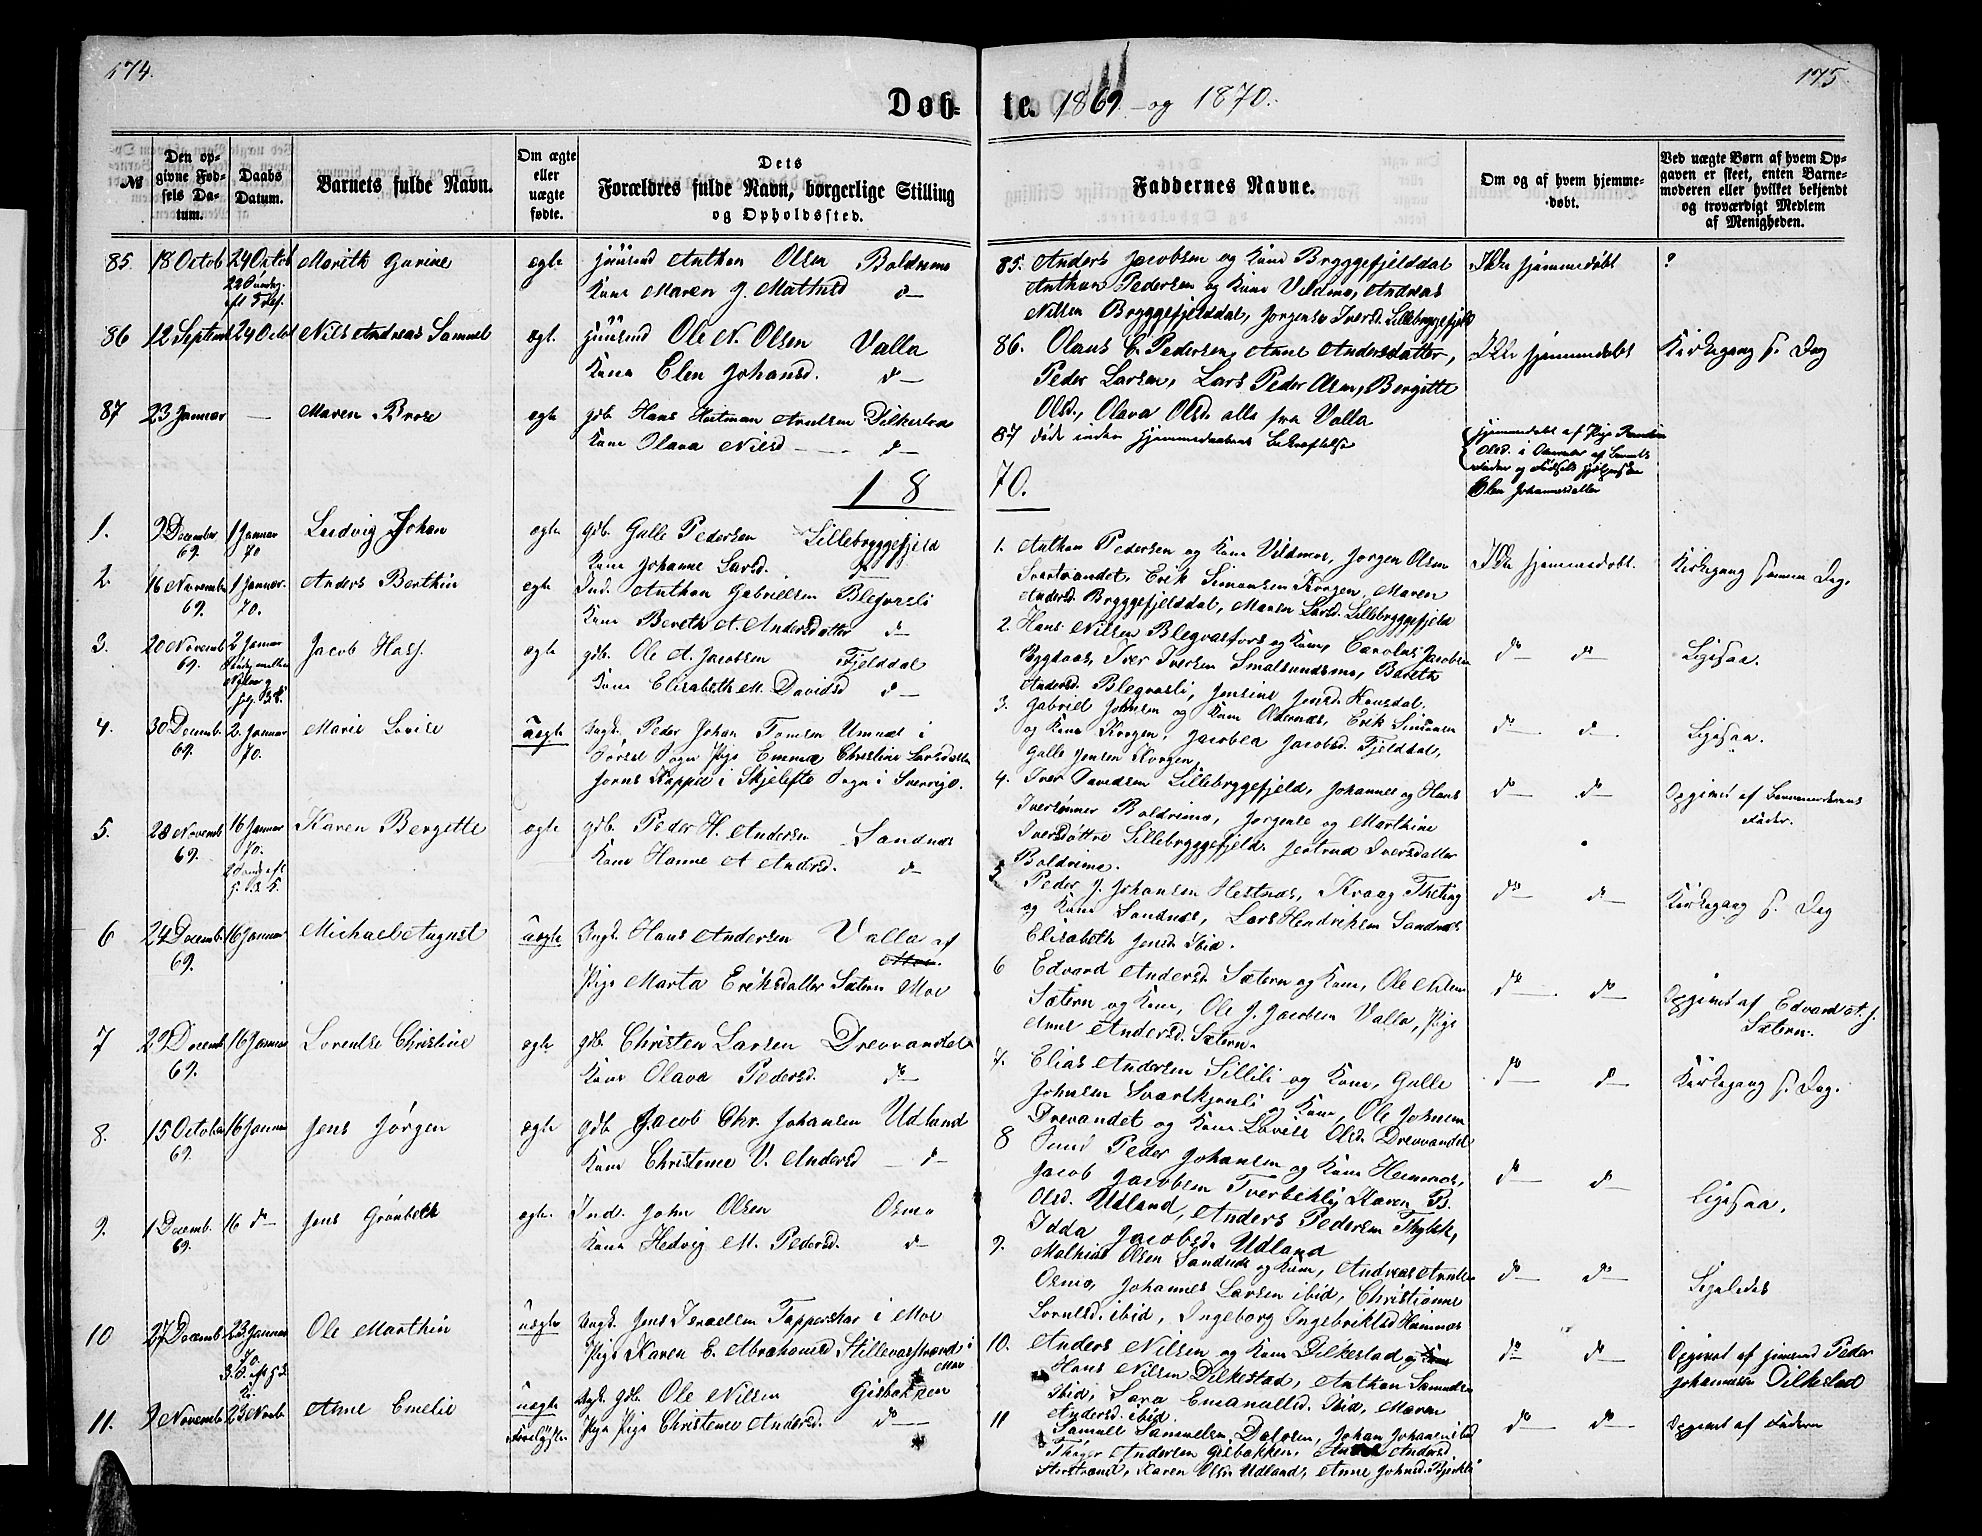 174.
175
Døb-
te. 1869 og 1870.
№
Den op-
givne Fød-
sels Da-
tum.
Daabs
Datum.
Barnets fulde Navn.
Om ægte
eller
uægte
fødte.
Dets
Forældres fulde Navn, borgerlige Stilling
og Opholdssted.
Faddernes Navne.
Om og af hvem hjemme-
døbt.
Ved uægte Børn af hvem Op-
gaven er skeet, enten Barne-
moderen eller hvilket bekjendt
og troværdigt Medlem
af Menigheden.
85 18 Octob 24 Octob Marith Gurine ægte Huusmd Anthon Olsen Boldrimo
Kone Maren J. Mathisd do
85. Anders Jacobsen og Kone Bryggefjelddal
Anthon Pedersen og Kone Vildmo, Andreas
Nilsen Bryggefjelddal, Jorgense Iversd. Lillebryggefjeld
Ikke hjemmedøbt ?
86 12 Septemb 24 Octob Nils Andreas Samuel ægt. Huusmd Ole N. Olsen Valla
Kone Elen Johansd. do
86. Olaus C. Pedersen, Anne Andersdatter,
Peder Larsen, Lars Peder Olsen, Bergitte
Olsd., Olava Olsd. alle fra Valla
Ikke hjemmedøbt Kirkegang s. Dag
87 23 Januar — Maren Brose ægte gdb. Hans Hartman Antonsen Dilkestad
Kone Olava Nilsd do
87 Døde inden Hjemmedaabens Bekræftelse
hjemmedøbt af Pige
Elen Johannesdatter
18 70.
1. 9 December 69. 1 Januar 70. Ludvig Johan ægte gdb. Gulle Pedersen Lillebryggefjeld
Kone Johanne Larsd. do
1. Anthon Pedersen og Kone Vildmo, Jorgen Olsen
Svartvandet, Erik Simonsen Krogen, Maren
Andersd. Bryggefjelddal, Maren Larsd. Lillebryggefjeld
Ikke hjemmedøbt. Kirkegang samme Dag.
2. 16 Novemb 69. 1 Januar. 70. Anders Berthin ægte Ind. Anthon Gabrielsen Blegvasli
Kone Bereth A. Andersdatter do
2. Hans Nilsen Blegvasfors og Kone, Carolus Jacobsen
Bygdaas, Iver Iversen Smalsundmo, Bereth
Andersd. Blegvasli, Jensine Jensd.
do do Ligesaa.
3. 20 Novemb 69. 2 Januar Jacob Hass. ægte gdb. Ole A. Jacobsen Fjelddal
Kone Elisabeth M. Davidsd do
3. Gabriel Johnsen og Kone Oldernæs, Erik Simonsen
og Kone Krogen, Jacobea Jacobsd. Fjelddal,
Gulle Jensen Korgen
do do Ligesaa.
4. 30 Decemb 69. 2. Januar 70. Marie Lovise uægte Ungk. Peder Johan Tomsen Umnæs i
Sorsel Sogn Pige Emma Christine Larsdatter
Jorns Kappel i Skjelefte Sogn i Sverrige.
4. Iver Davidsen Lillebryggefjeld, Johannes og Hans
Iversønner Boldrimo, Jorgense og Marthine
Iversdøttre Lillebryggefjeld. Jertrud Iversdatter
Boldrimo.
do do Opgivet af Barnemoderens
Fader.
5. 28 Novemb 69. 16 Januar 70. Karen Bergitte ægte gdb. Peder H. Andersen Sandnæs
Kone Hanne A Andersd. do
5 Peder J. Johansen Hestnæs, Kraag Theting
og Kone Sandnæs, Lars Hendriksen Sandnæs
Elisabeth Jensd. Ibid.
do do Kirkegang s. Dag
6 24 Decemb 69. 16 Januar Michael August uægte Ungk. Hans Andersen Valla af
Pige Marta Eriksdatter Sætern Moe
6 Edvard Andersd. Sætern og Kone, Ole Nilsen
Sætern og Kone, Ole J. Jacobsen Valla, Pige
Anne Andersd. Sætern.
do do Opgivet af Edvard A. J.
Sætern.
7 29 Decemb 69. 16 Januar Lorentse Christine ægte gdb. Christen Larsen Drevvandet
Kone Olava Pedersd. do
7. Elias Andersen Lillili og Kone, Gulle
Johnsen Svartkjenli og Kone, Ole Johnsen
Drevandet og Kone Lovise Olsd. Drevvandet
do do Kirkegang s. Dag.
8. 15 October 69. 16 Januar Jens Jørgen ægte gdb. Jacob Chr. Johansen Udland
Kone Christense V. Andersd do
8 Peder Johansen og Kone Hemnæs,
Jacob Jacobsen Tverbekli, Karen B.
Olsd. Udland, Anders Pedersen
Idda Jacobsd. Udland
do do Ligesaa.
9. 1 Decemb. 69. 16 do Jens Grønbech ægte. Ind. John Olsen Osmo
Kone Hedvig M. Pedersd. do
9. Mathias Olsen Sandnæs og Kone, Andreas
Osmo, Johannes Larsen ibid, Christianne
ibid, Ingeborg Ingebriktsd Hemnæs
do do Ligeledes
10 27 Decemb. 23 Januar 70. Ole Marthin uægte Ungk. Jens Israelsen Tapperskar i Moe
Pige Karen E. Abrahamsd Stillevasstrand i
Moe
10. Anders Nilsen og Kone Dilkestad
Hans Nilsen Dilkestad, Anthon Samuelsen
ibid, Sara Emanuelsd. Ibid, Maren
Andersd. ibid.
do do Opgivet af Huusmd Peder
Johannesen Dilkestad
11. 9 Novemb 23 Novb. Anne Emelie uægte Ungk. gdb. Ole Nilsen Gisbakken
Pige Pige Christense Andersd. do
11 Samuel Samuelsen Dalosen, Johan Johannes
Andersen Gisbakken, Andersd
Karen Olsd. Udland, Anne Johnsd. Bjerkli
do do Opgivet af Faderen